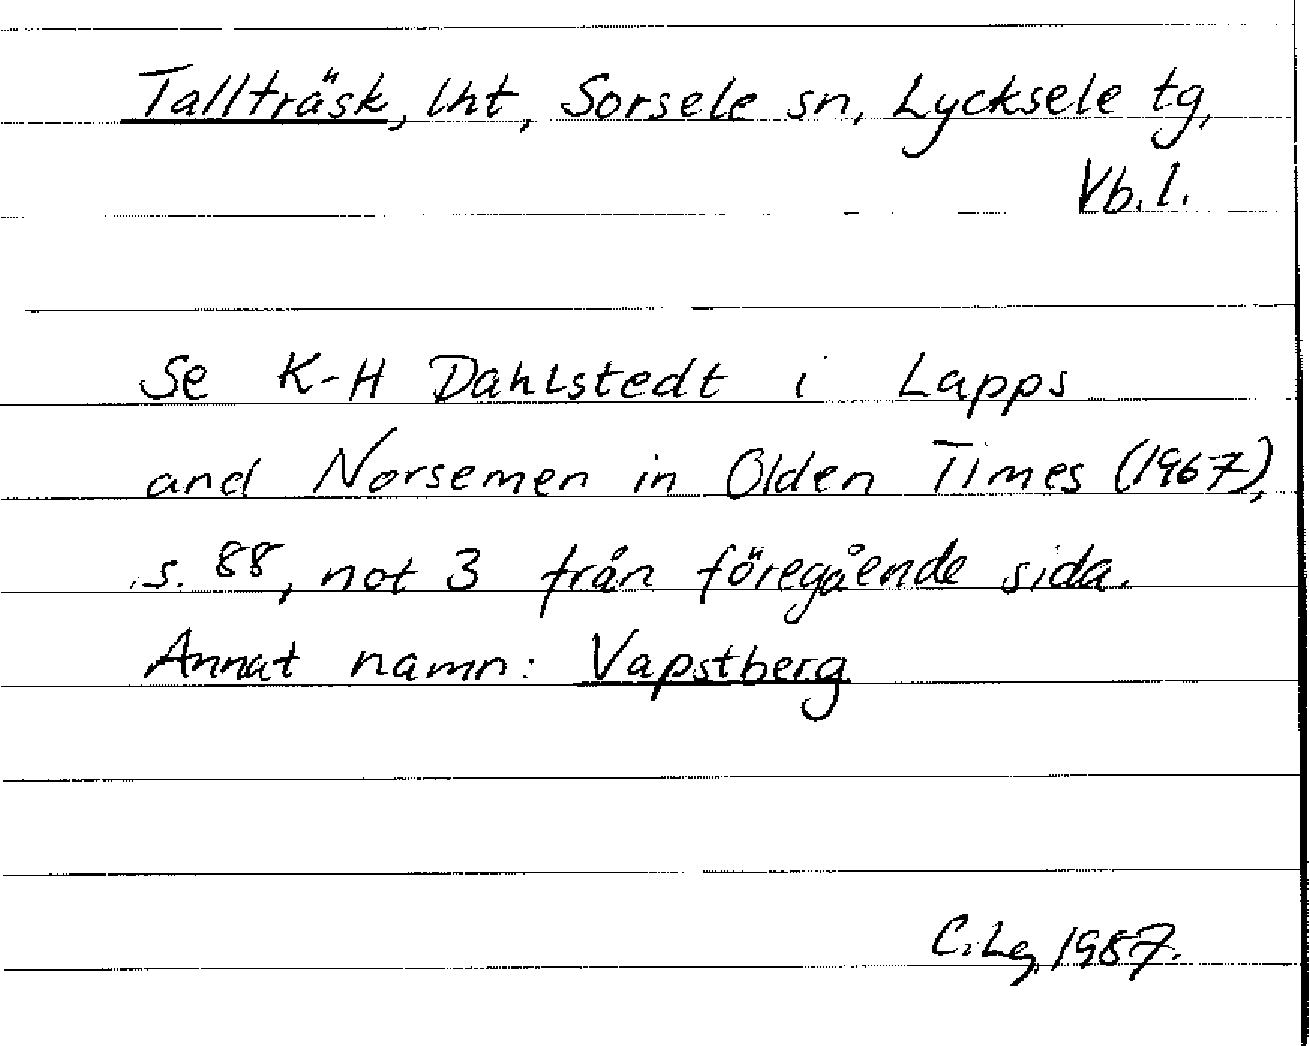 Tallträsk, lht, Sorsele sn, Lycksele tg,
Vb. l.
Se K-H Dahlstedt i Lapps
and Norsemen in Olden Times (1967),
s. 88, not 3 från föregående sida.
Annat namn: Vapstberg
C. Lg, 1987.